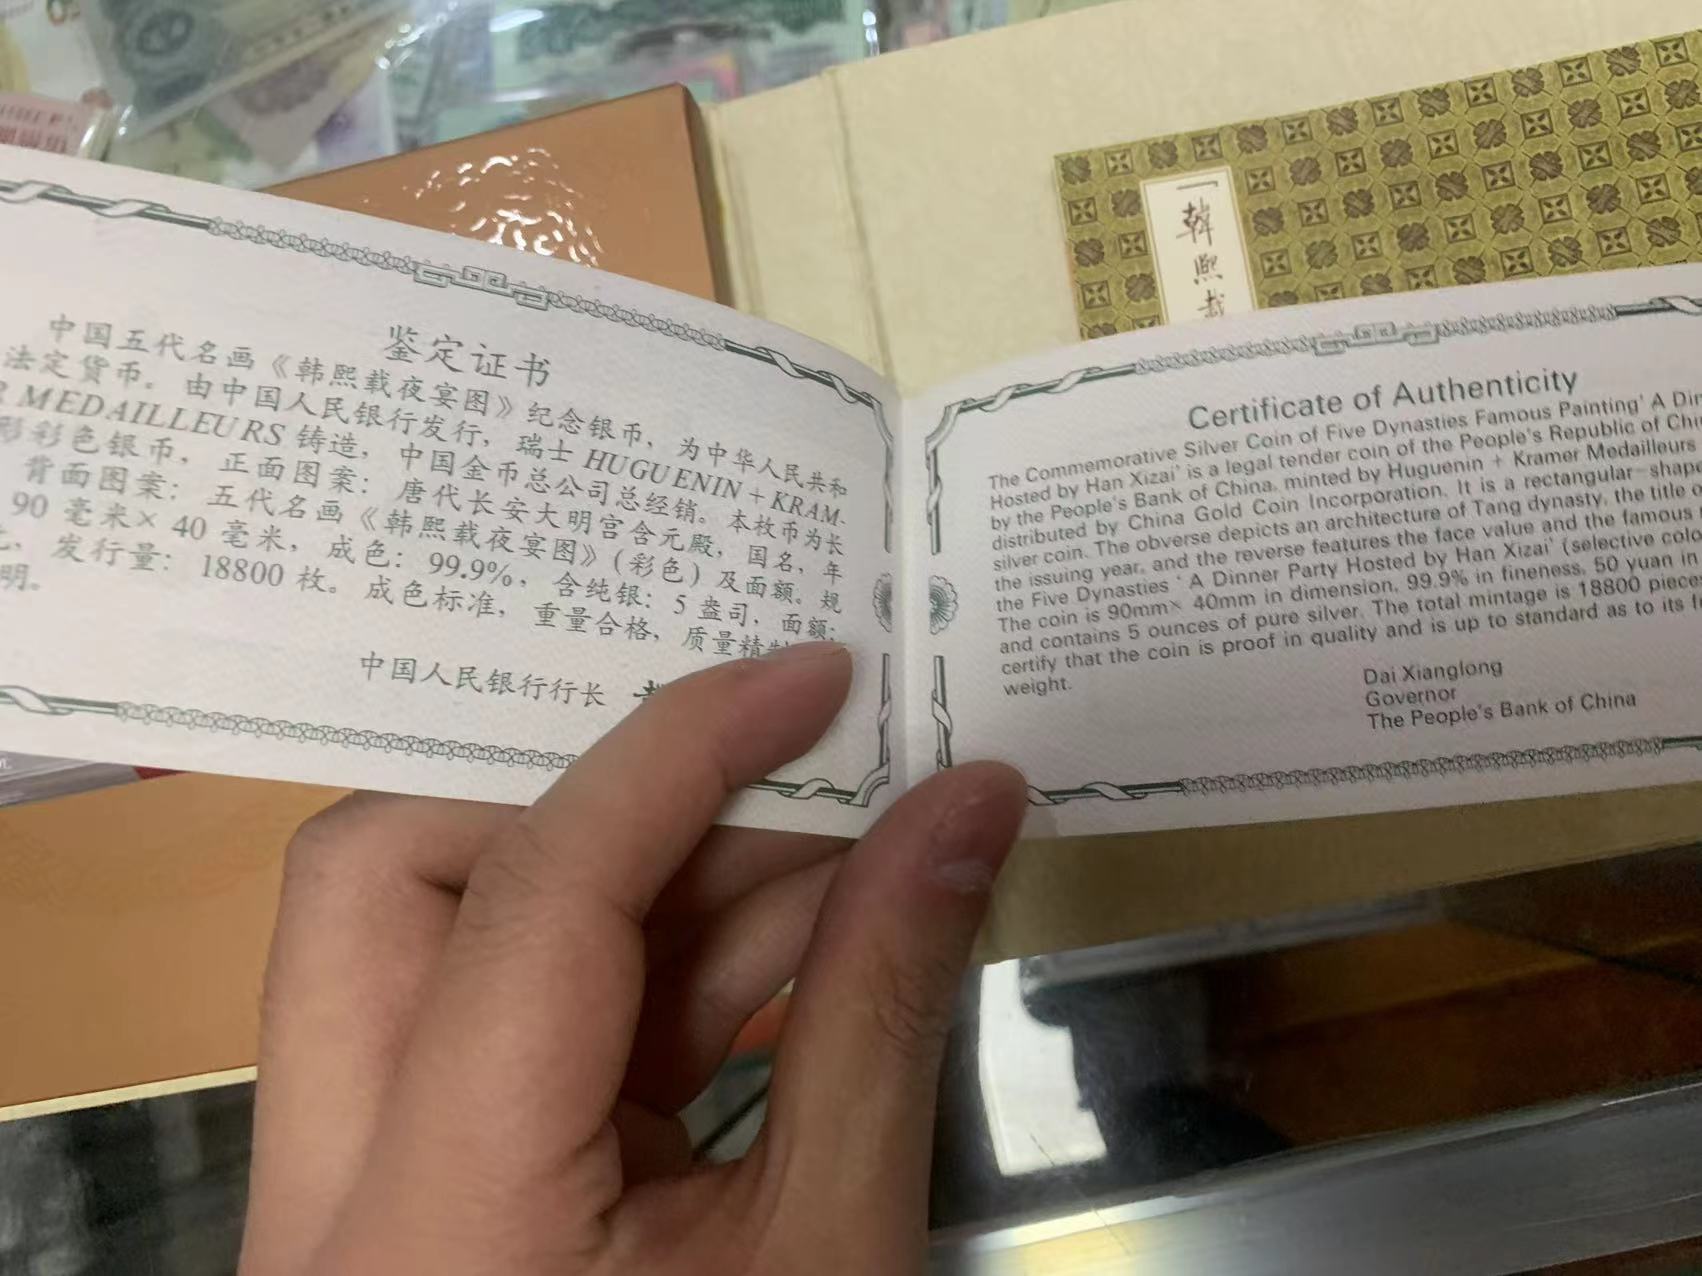 鉴定证书
中国五代名画《韩熙载夜宴图》纪念银币，为中华人民共和
法定货币。由中国人民银行发行，瑞士 HUGUENIN + KRAM-
R MEDAILLEURS 铸造，中国金币总公司总经销。本枚币为长
形彩色银币，正面图案：唐代长安大明宫含元殿，国名，年
背面图案：五代名画《韩熙载夜宴图》(彩色)及面额。规
90 毫米× 40 毫米，成色：99.9%，含纯银：5 盎司，面额：
发行量：18800 枚。成色标准，重量合格，质量精制
明。
中国人民银行行长
Certificate of Authenticity
The Commemorative Silver Coin of Five Dynasties Famous Painting' A Din
Hosted by Han Xizai' is a legal tender coin of the People's Republic of Chi
by the People's Bank of China, minted by Huguenin + Kramer Medailleurs
distributed by China Gold Coin Incorporation. It is a rectangular-shape
silver coin. The obverse depicts an architecture of Tang dynasty, the title o
the issuing year, and the reverse features the face value and the famous
the Five Dynasties ' A Dinner Party Hosted by Han Xizai' (selective colo
The coin is 90mm× 40mm in dimension, 99.9% in fineness, 50 yuan in
and contains 5 ounces of pure silver. The total mintage is 18800 piece
certify that the coin is proof in quality and is up to standard as to its f
weight.
Dai Xianglong
Governor
The People's Bank of China
韩熙载